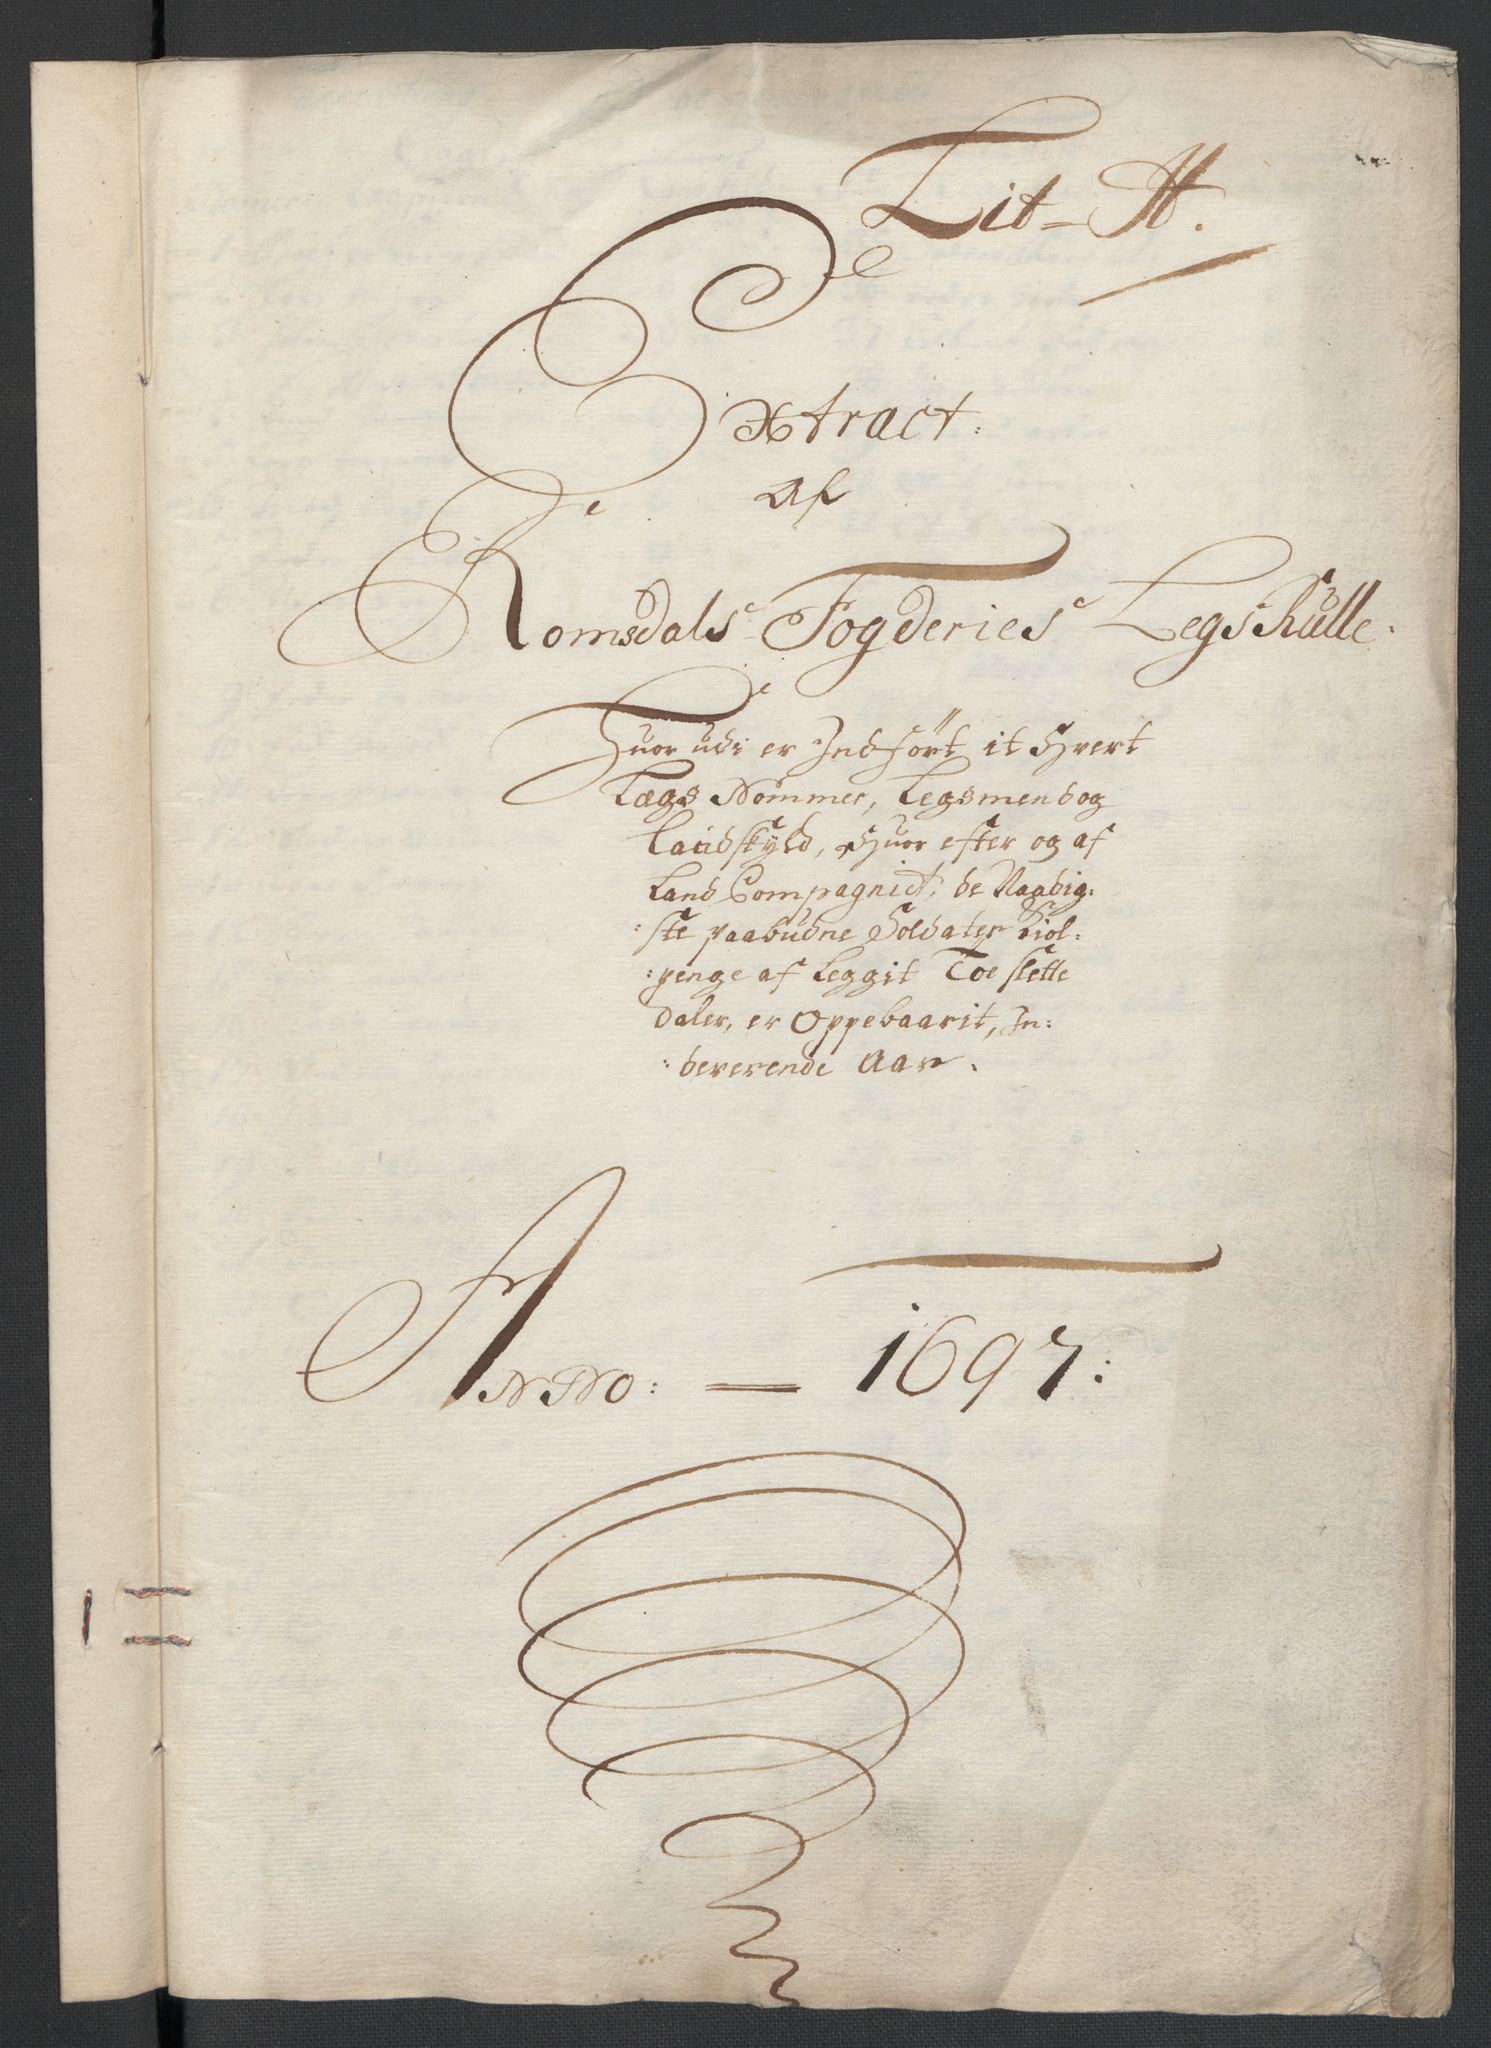 Lit= H.
Extract:
af
Romsdals Fogderies Legs Rulle.
Huor udi er Indført it Hvert
Lægs Nommer, Legsmend og
Landskyld, Huor efter og af
Land Compagniet, de Naadig:
:ste paabudne Soldater Kiol:
:penge af Leggit Toe slette
daler, er Oppebaarit, In:
:deverende Aar.
ANNO: = 1697: